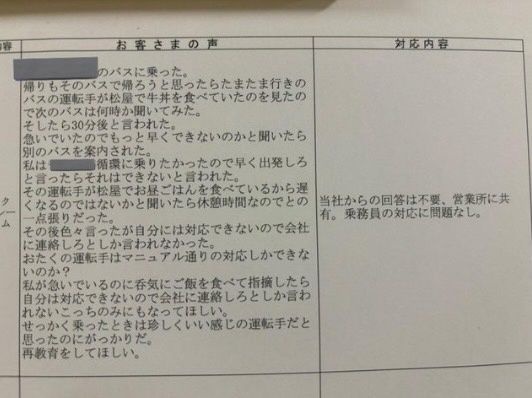 内容 お客さまの声 対応内容
のバスに乗った。
帰りもそのバスで帰ろうと思ったらたまたま行きの
バスの運転手が松屋で牛丼を食べていたのを見たの
で次のバスは何時か聞いてみた。
そしたら30分後と言われた。
急いでいたのでもっと早くできないのかと聞いたら
別のバスを案内された。
私は循環に乗りたかったので早く出発しろ
と言ったらそれはできないと言われた。
その運転手が松屋でお昼ごはんを食べているから遅
くなるのではないかと聞いたら休憩時間なのでとの
一点張りだった。
その後色々言ったが自分には対応できないので会社
に連絡しろとしか言われなかった。
おたくの運転手はマニュアル通りの対応しかできな
いのか？
私が急いでいるのに呑気にご飯を食べて指摘したら
自分は対応できないので会社に連絡しろとしか言わ
れないこっちのみにもなってほしい。
せっかく乗ったときは珍しくいい感じの運転手だと
思ったのにがっかりだ。
再教育をしてほしい。
ク
ー
ム
当社からの回答は不要、営業所に共
有。乗務員の対応に問題なし。